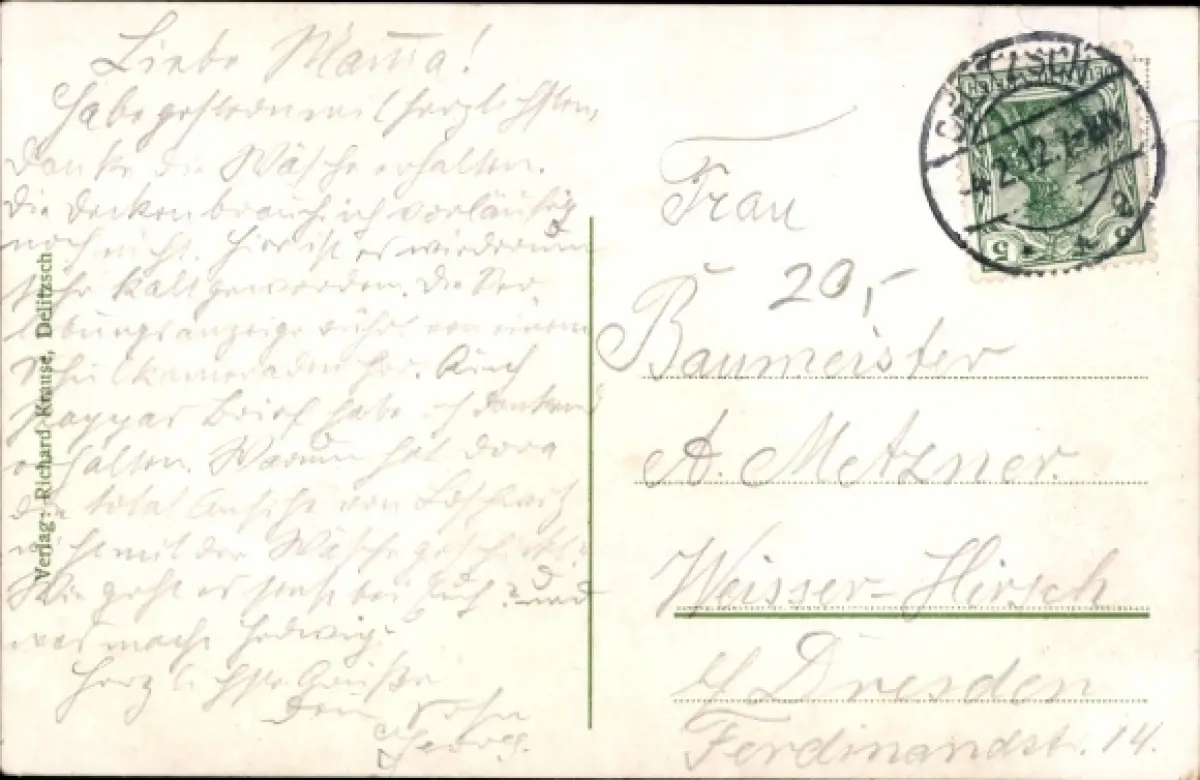 Liebe Mama!
Habe gestern mit herzlichsten
Danke die Wäsche erhalten.
Die Decken brauch ich vorläufig
noch nicht. Hier ist es wiederum
sehr kalt geworden. Die Ver-
lobungsanzeige rührt von einem
Schulkameraden her. Auch
Pappas Brief habe ich dankend
erhalten. Warum hat Dora
die total Ansicht von Loschwitz
nicht mit der Wäsche geschickt?
Wie geht es sonst bei Euch? und
was macht Hedwig?
Herzlichste Grüße
Dein Sohn
Georg.
Verlag: Richard Krause, Delitzsch
DELITZSCH
4.2.12.
5 5
Frau
20,-
Baumeister
A. Metzner.
Weisser-Hirsch
b/ Dresden
Ferdinandstr. 14.